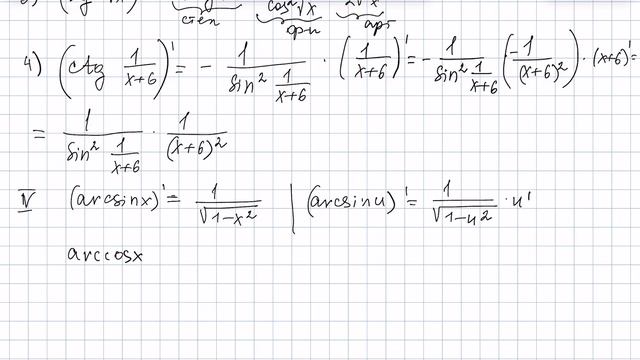 степ cos²√x 2√x
ф-и арг
4) (ctg 1/(x+6))' = - 1/(sin² 1/(x+6)) · (1/(x+6))' = - 1/(sin² 1/(x+6)) (-1/(x+6)²) · (x+6)' =
= 1/(sin² 1/(x+6)) · 1/(x+6)²
IV (arcsinx)' = 1/√(1-x²) | (arcsinu)' = 1/√(1-u²) · u'
arccosx